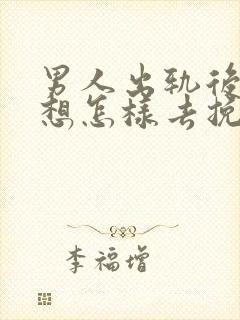 男人出轨後
想怎樣去挽
李福增